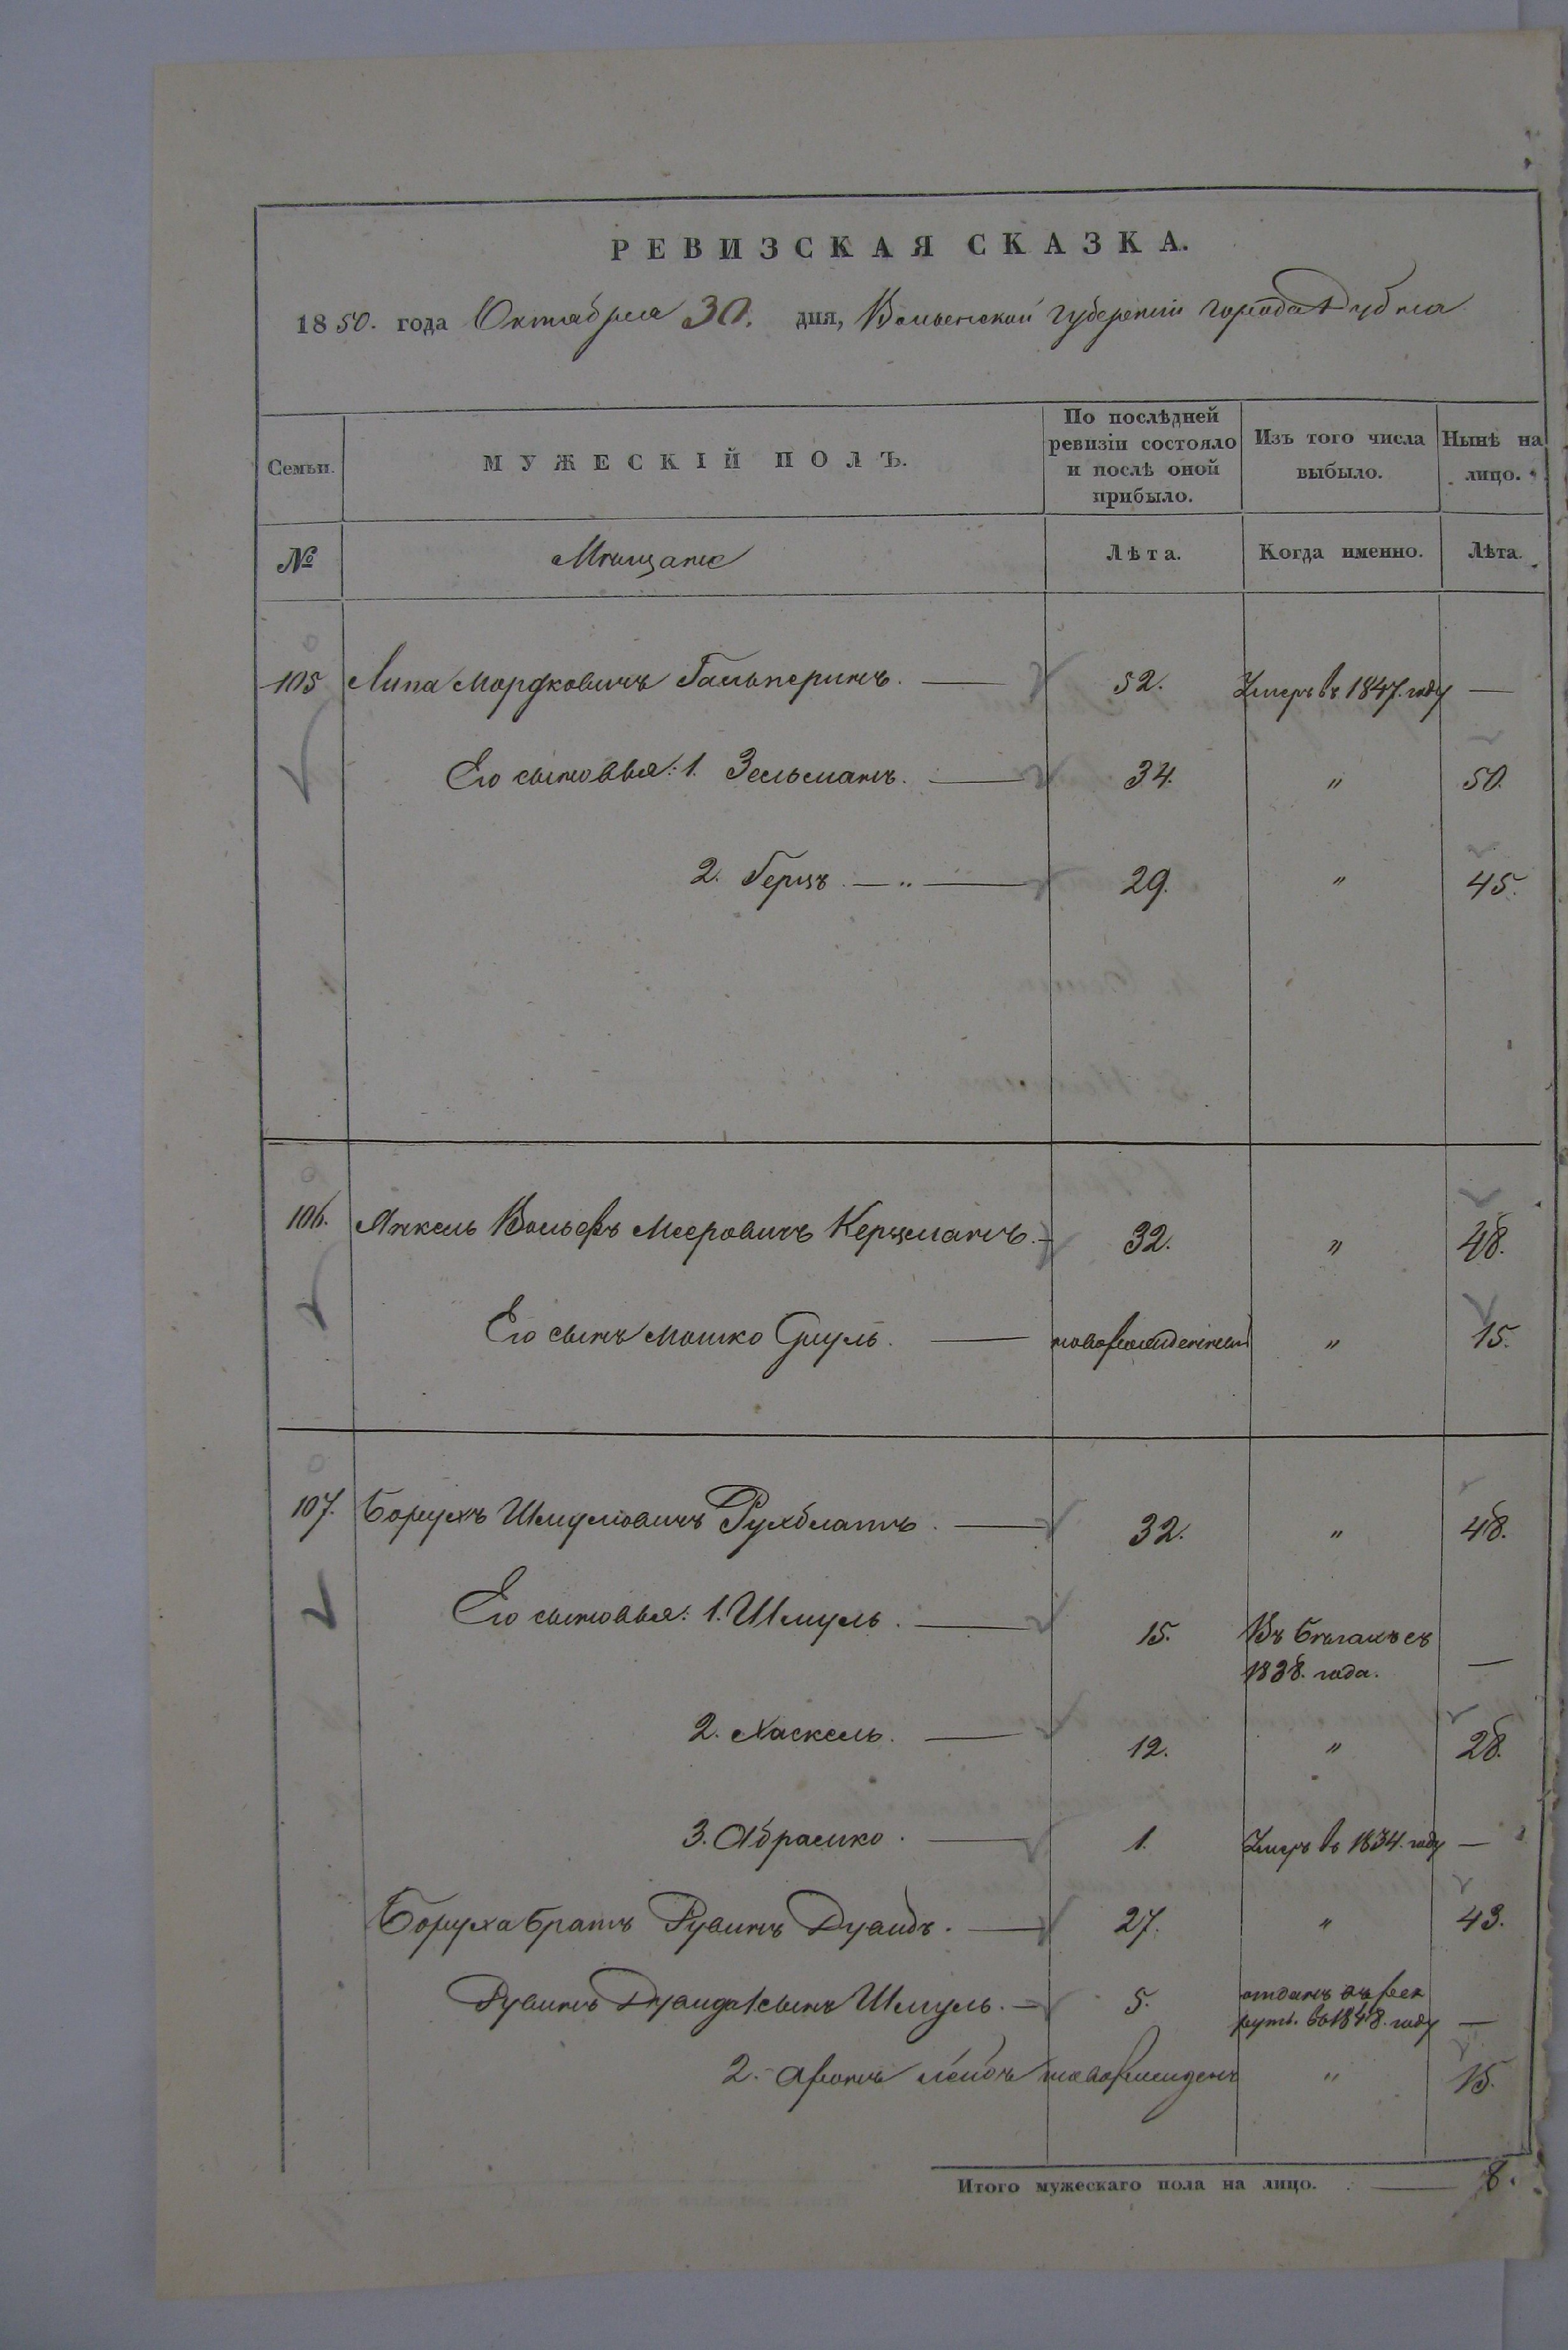 РЕВИЗСКАЯ СКАЗКА.
1850. года Октября 30. дня, Волынской губернии города Дубна
Семьи.
МУЖЕСКІЙ ПОЛЪ.
По послѣдней ревизіи состояло и послѣ оной прибыло.
Изъ того числа выбыло.
Нынѣ на лицо.
№
Мѣщане
Лѣта.
Когда именно.
Лѣта.
105 Липа Мордковичъ Гальперинъ. — 52. Умеръ въ 1847. году —
Его сыновья: 1. Зельманъ. — 34. " 50.
2. Герцъ. — " — 29. " 45.
106. Янкель Вольфъ Мееровичъ Керцманъ. — 32. " 48.
Его сынъ Мошко Сруль. — новорожденный " 15.
107. Борухъ Шмулiовичъ Рухблатъ. — 32. " 48.
Его сыновья: 1. Шмуль. — 15. Въ бѣгахъ съ
1838. года. —
2. Хаскель. — 12. " 28.
3. Абрамко. — 1. Умеръ въ 1834. году —
Боруха братъ Рувинъ Дувидъ. — 27. " 43.
Рувинъ Дувида 1 сынъ Шмуль. — 5. отданъ въ рек
руты. въ 1848. году —
2. Аронъ Лейбъ новорожденъ " 15.
Итого мужескаго пола на лицо. — 8.